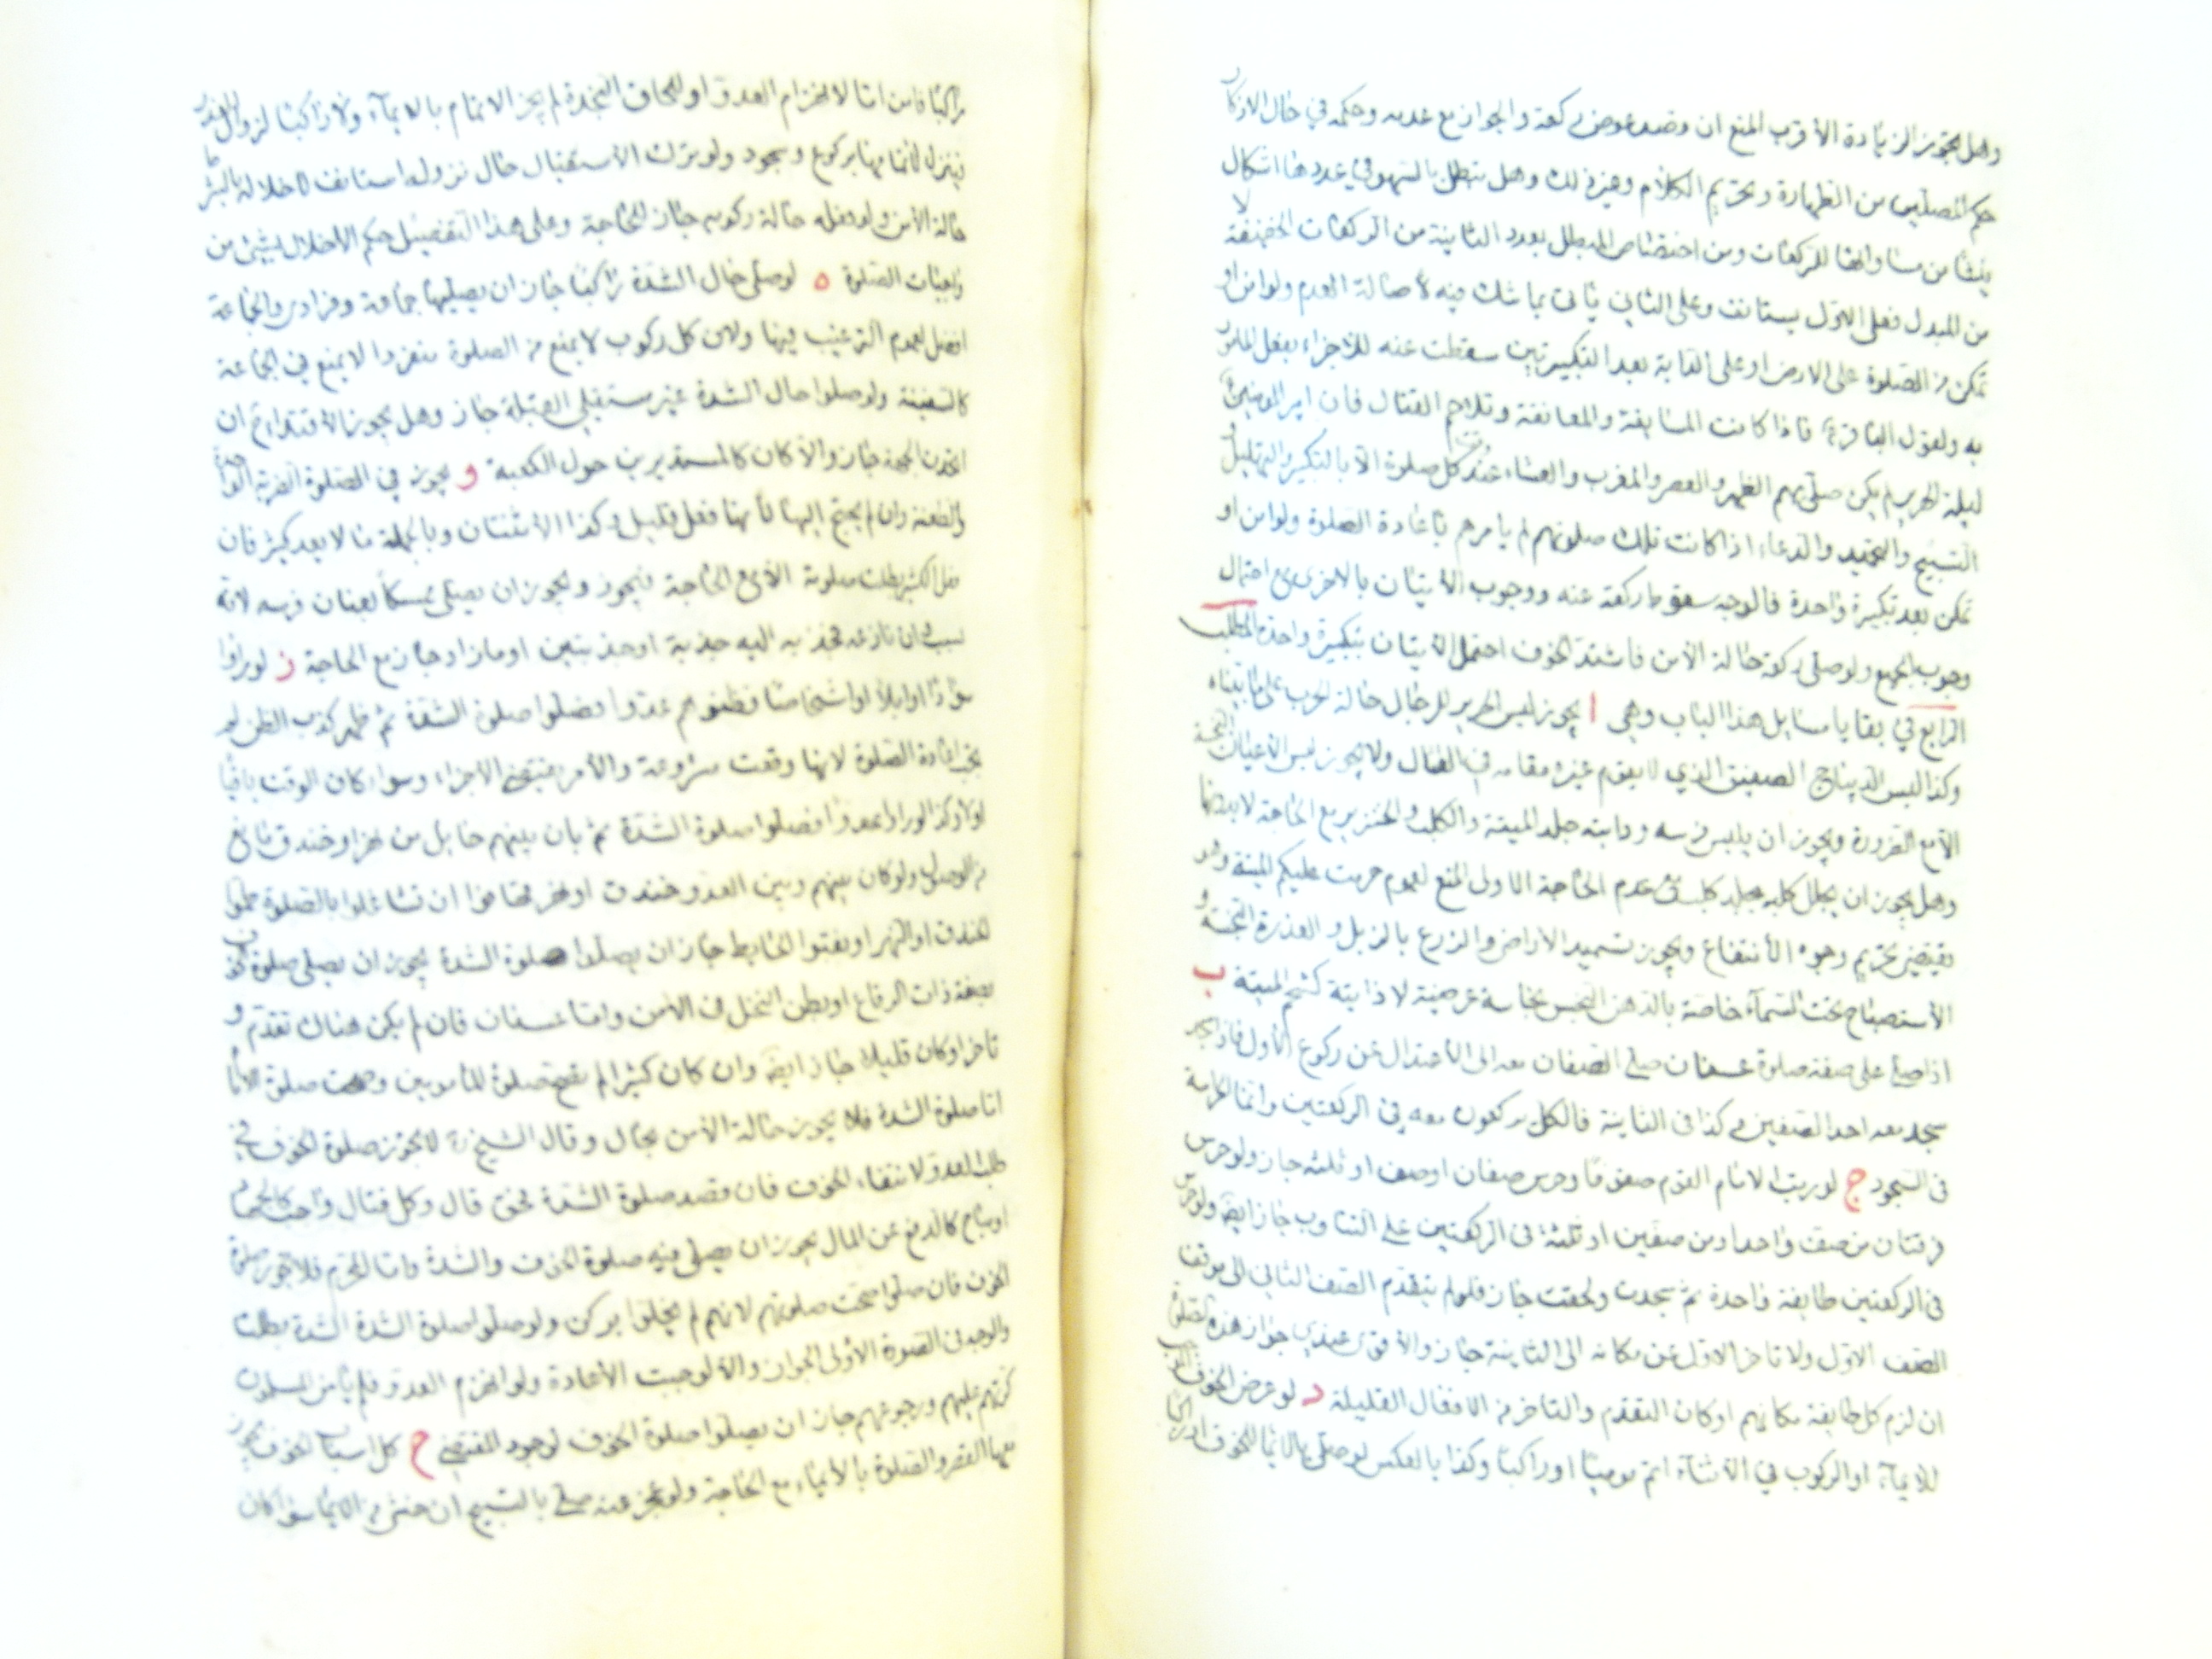 وهل يجوز الزيادة الأقرب المنع ان قصد عوض ركعة والجواز مع عدمه وحكمه في حال الاذكار
حكم المصلين من الطهارة وتحريم الكلام وغير ذلك وهل تبطل بالسهو في عددها اشكال
ينشأ من مساواتها للركعات ومن اختصاص المبطل بعدد الثانية من الركعات الحقيقة لا
من المبدل فعلى الاول يستانف وعلى الثاني ياتي بما شك فيه لأصالة العدم ولو امن او
تمكن من الصلوة على الارض او على الدابة بعد التكبيرتين سقطت عنه للاجزاء بفعل المأمور
به ولقول الباقر ع فاذا كانت المسايفة والمعانقة وتلاحم القتال فان امير المومنين ع
ليلة الهرير لم يكن صلى بهم الظهر والعصر والمغرب والعشاء عند وقت كل صلوة الا بالتكبير والتهليل
التسبيح والتحميد والدعاء اذا كانت تلك صلوتهم لم يامرهم باعادة الصلوة ولو امن او
تمكن بعد تكبيرة واحدة فالوجه سقوط ركعة عنه ووجوب الأتيان بالاخرى مع احتمال
وجوب الجميع ولو صلى ركعة حالة الأمن فاشتد الخوف احتمل الأتيان بتكبيرة واحدة المطلب
الرابع في بقايا مسايل هذا الباب وهي ا يجوز لبس الحرير للرجال حالة الحرب على ما بيناه
وكذا لبس الديباج الصفيق الذي لا يقوم غيره مقامه في القتال ولا يجوز لبس الأعيان النجسة
الا مع الضرورة ويجوز ان يلبس فرسه ودابته جلد الميتة والكلب والخنزير مع الحاجة لا بدونها
وهل يجوز ان يجلل كلبه بجلد كلب مع عدم الحاجة الاولى المنع لعموم حرمت عليكم الميتة وهو
يقتضي تحريم وجوه الأنتفاع ويجوز تسميد الاراض والزرع بالزبل والعذرة النجسة و
الأستصباح تحت السماء خاصة بالدهن النجس نجاسة عرضية لا ذاتية كشحم الميتة ب
اذا صلى على صفة صلوة عسفان صلى الصفان معه الى الأعتدال عن ركوع الأول فاذا سجد
سجد معه احد الصفين وكذا في الثانية فالكل يركعون معه في الركعتين وانما الحراسة
في السجود ج لو رتب الامام القوم صفوفا وحرس صفان او صف او ثلثه جاز ولو حرس
فرقتان من صف واحد او من صفين او ثلثة في الركعتين على التناوب جاز ايضا ولو حرس
في الركعتين طايفة واحدة ثم سجدت ولحقت جاز فلو لم يتقدم الصف الثاني الى موقف
الصف الاول ولا تاخر الاول عن مكانه الى الثانية جاز والأقوى عندي جواز هذه الصلوة
ان لزم كل طايفة مكانهم او كان التقدم والتاخر من الافعال القليلة د لو عرض الخوف الموجب
للايماء او الركوب في الأثناء اتم موميا او راكبا وكذا بالعكس لو صلى بالايماء للخوف او راكبا
راكبا فامن اما لانهزام العدو او للحاق النجدة لم يجز الاتمام بالايماء ولا راكبا لزوال العذر
فينزل لاتمامها بركوع وسجود ولو ترك الأستقبال حال نزوله استانف لاخلاله بالشرط
حالة الأمن ولو فعله حالة ركوبه جاز للحاجة وعلى هذا التفصيل حكم الاخلال بشيء من
واجبات الصلوة ه لو صلى حال الشدة راكبا جاز ان يصليها جماعة وفرادى والجماعة
افضل لعموم الترغيب فيها ولان كل ركوب لا يمنع من الصلوة منفردا لا يمنع في الجماعة
كالسفينة ولو صلوا حال الشدة غير مستقبلي القبلة جاز وهل يجوز الاقتداء مع ان
اتحدت الجهة جاز والا كان كالمستديرين حول الكعبة و يجوز في الصلوة الضربة الواحدة
والطعنة وان لم يحتج اليها لأنها فعل قليل وكذا الأثنتان وبالجملة ما لا يعد كثيرا فان
فعل الكثير بطلت صلوته الأمع الحاجة فيجوز ويجوز ان يصلي ممسكا بعنان فرسه لانه
يسير فان نازعه فجذبه اليه جذبة او جذبتين او ما زاد جاز مع الحاجة ز لو راوا
سوادا او ابلا او اشخاصا فظنوهم عدوا فصلوا صلوة الشدة ثم ظهر كذب الظن لم
يجب اعادة الصلوة لانها وقعت مشروعة والأمر يقتضي الاجزاء وسواء كان الوقت باقيا
اولا وكذا لو راوا عدوا فصلوا صلوة الشدة ثم بان بينهم حايل من نهر او خندق مانع
من الوصول ولو كان بينهم وبين العدو خندق او نهر فخافوا ان تشاغلوا بالصلوة طموا
الخندق او النهر او نقبوا الحايط جاز ان يصلوا صلوة الشدة يجوز ان يصلي صلوة الخوف
بصفة ذات الرقاع او بطن النخل في الأمن واما عسفان فان لم يكن هناك تقدم و
تاخر او كان قليلا جاز ايضا وان كان كثيرا لم تصح صلوة المامومين وصحت صلوة الامام
اما صلوة الشدة فلا يجوز حالة الأمن بحال وقال الشيخ ره لا يجوز صلوة الخوف في
طلب العدو لانتفاء الخوف فان قصد صلوة الشدة فحق قال وكل قتال واجب كالجهاد
او مباح كالدفع عن المال يجوز ان يصلى فيه صلوة الخوف والشدة واما المحرم فلا يجوز صلوة
الخوف فان صلوا صحت صلوتهم لانهم لم يخلوا بركن ولو صلوا صلوة الشدة الشدة بطلت
والوجه في الصورة الأولى الجواز والا لوجبت الأعادة ولو انهزم العدو فلم يامن المسلمون
كرتهم عليهم ورجوعهم جاز ان يصلوا صلوة الخوف لوجود المقتضي ح كل اسباب الخوف يجوز
معها القصر والصلوة بالأيماء مع الحاجة ولو عجز عنه صلى بالتسبيح ان خشي من الايماء سواء كان